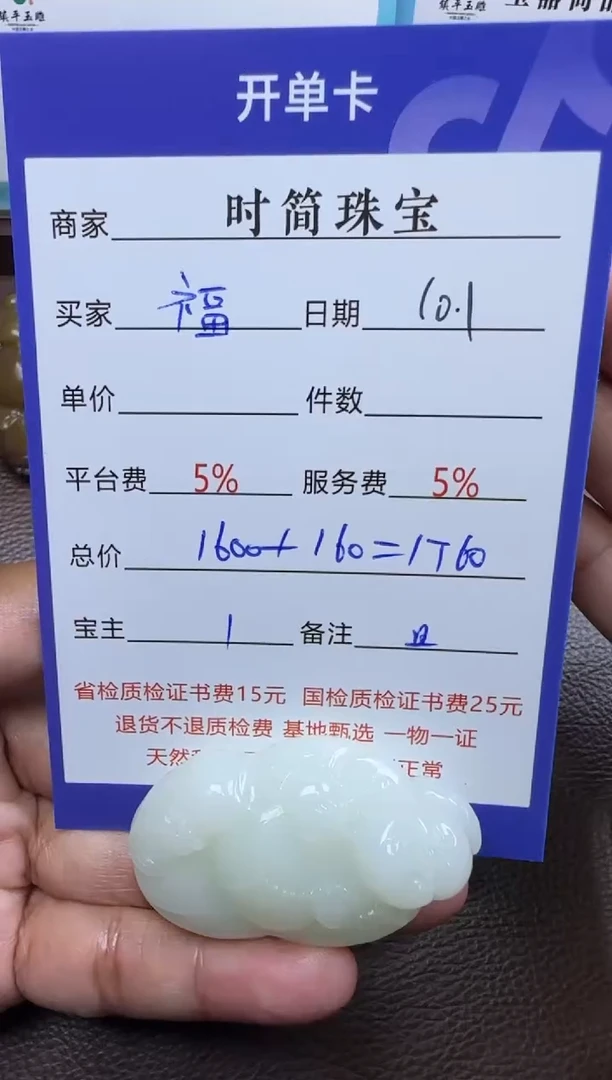 镇平玉雕
镇平玉雕
开单卡
商家 时简珠宝
买家 福 日期 10.1
单价 件数
平台费 5% 服务费 5%
总价 1600+160=1760
宝主 1 备注
省检质检证书费15元 国检质检证书费25元
退货不退质检费 基地甄选 一物一证
天然 正常